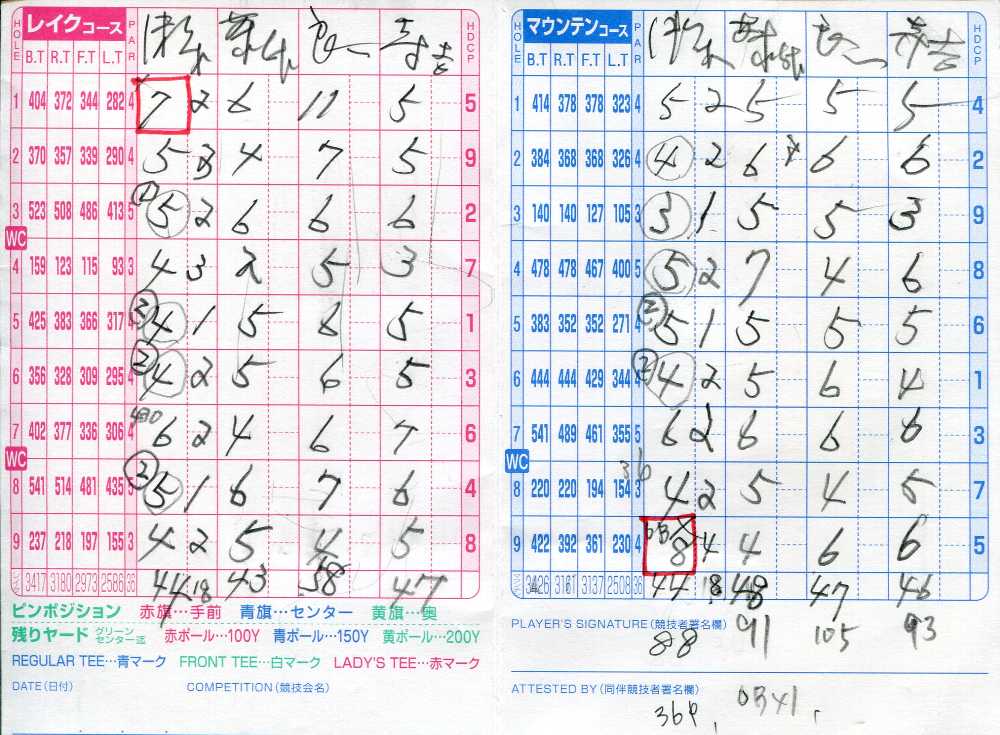 HOLE レイクコース PAR HDCP
B.T R.T F.T L.T
1 404 372 344 282 4 7 2 6 11 5 5
2 370 357 339 290 4 5 3 4 7 5 9
3 523 508 486 413 5 5 2 6 6 6 2
WC
4 159 123 115 93 3 4 3 2 5 3 7
5 425 383 366 317 4 ② 4 1 5 8 5 1
6 356 328 309 295 4 ② 4 2 5 6 5 3
7 402 377 336 306 4 6 2 4 6 7 6
WC
8 541 514 481 435 5 ② 5 1 6 7 6 4
9 237 218 197 155 3 4 2 5 4 5 8
3417 3180 2973 2586 36 44 18 43 58 47
ピンポジション 赤旗…手前 青旗…センター 黄旗…奥
残りヤード グリーンセンター迄 赤ポール…100Y 青ポール…150Y 黄ポール…200Y
REGULAR TEE…青マーク FRONT TEE…白マーク LADY'S TEE…赤マーク
DATE(日付) COMPETITION(競技会名)
HOLE マウンテンコース PAR HDCP
B.T R.T F.T L.T
1 414 378 378 323 4 5 2 5 5 5 4
2 384 368 368 326 4 4 2 6 6 6 2
3 140 140 127 105 3 3 1 5 5 3 9
4 478 478 467 400 5 5 2 7 4 6 8
5 383 352 352 271 4 ② 5 1 5 5 5 6
6 444 444 429 344 4 ② 4 2 5 6 4 1
7 541 489 461 355 5 6 2 6 6 6 3
WC
8 220 220 194 154 3 4 2 5 4 5 7
9 422 392 361 230 4 OB 8 4 4 6 6 5
3426 3161 3137 2508 36 44 18 48 47 46
PLAYER'S SIGNATURE(競技者署名欄)
88 91 105 93
ATTESTED BY(同伴競技者署名欄)
36P, OB×1,